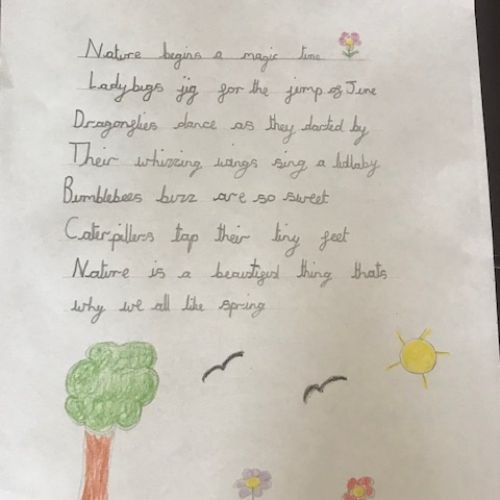 Nature begins a magic time
Ladybugs jig for the jump of June
Dragonflies dance as they darted by
Their whizzing wings sing a lullaby
Bumblebees buzz are so sweet
Caterpillers tap their tiny feet
Nature is a beautiful thing thats
why we all like spring